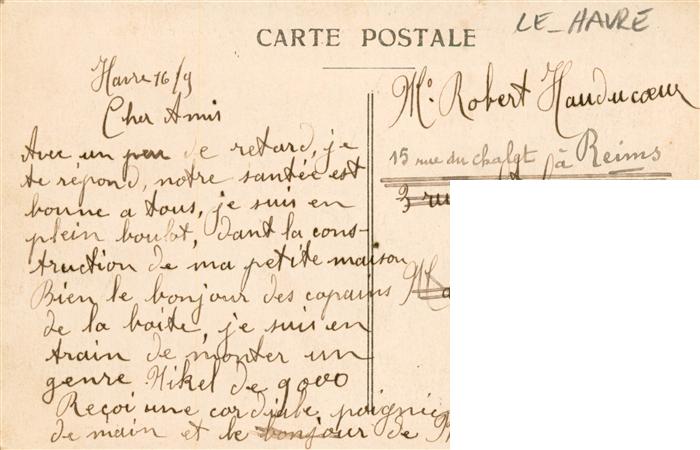 CARTE POSTALE
LE-HAVRE
Havre 16/9
Cher Amis
Avec un peu de retard, je
te répond, notre santée est
bonne a tous, je suis en
plein boulot, dant la cons-
truction de ma petite maison
Bien le bonjour des copains
de la boite, je suis en
train de monter un
genre Nikel de 9000
Reçoi une cordiale poignée
de main et le bonjour de
Mr. Robert Hauducœur
15 rue du chalet à Reims
3 rue